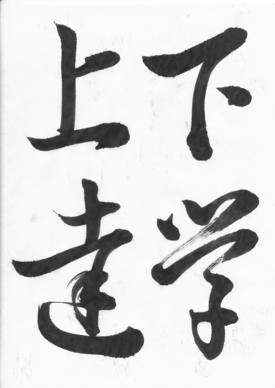 下学
上達